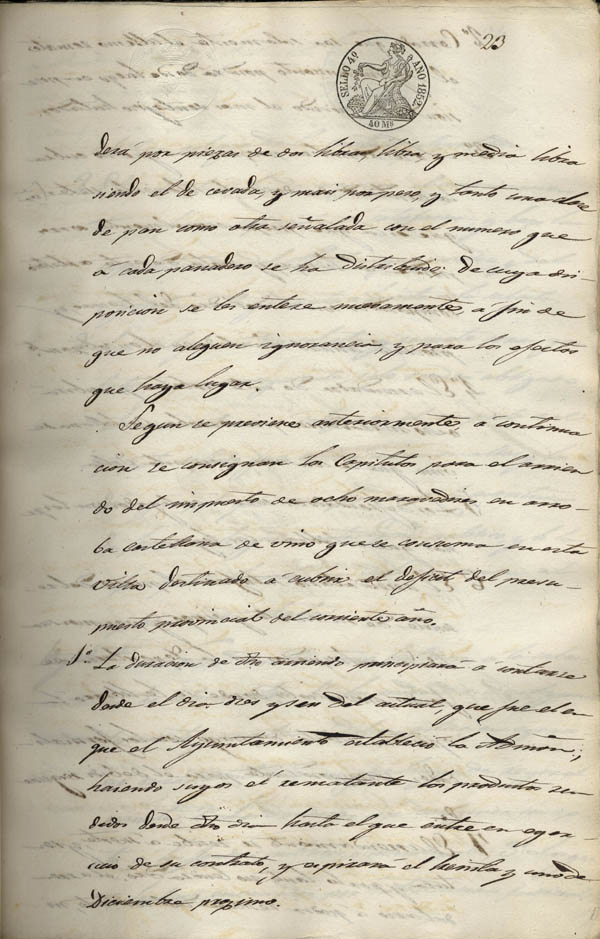 23
SELLO 4º AÑO 1852.
40 Ms
derá por piezas de dos libras, libra y media libra
siendo el de cevada, y mais por pero, y tanto una clase
de pan como otra señalada con el numero que
á cada panadero se ha distribuido; de cuya dis-
posicion se les entere nuevamente, á fin de
que no aleguen ignorancia, y para los efectos
que haya lugar.
Segun se previene anteriormente, á continua
cion se consignan los Capitulos para el arrien
do del impuesto de ocho maravedises en arro-
ba castellana de vino que se consuma en esta
villa destinado á cubrir el deficit del presu-
puesto provincial del corriente año.
1º La duracion de dho arriendo principiará á contarse
desde el dia diez y seis del actual, que fue el en
que el Ayuntamiento estableció la Admon;
haciendo suyos el rematante los productos ren
didos desde dho dia hasta el que entre en eger-
cicio de su contrato, y espirará el treinta y uno de
Diciembre proximo.